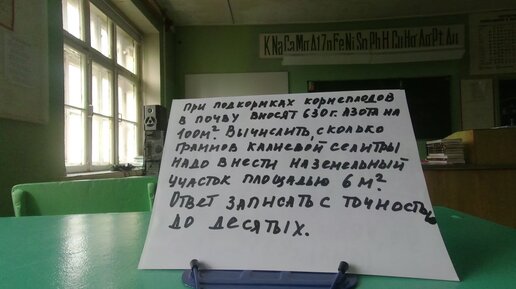 K Na Ca Mg Al Zn Fe Ni Sn Pb H Cu Hg Ag Pt Au
ПРИ ПОДКОРМКАХ КОРНЕПЛОДОВ
В ПОЧВУ ВНОСЯТ 630 г. АЗОТА НА
100М². ВЫЧИСЛИТЬ, СКОЛЬКО
ГРАММОВ КАЛИЕВОЙ СЕЛИТРЫ
НАДО ВНЕСТИ НА ЗЕМЕЛЬНЫЙ
УЧАСТОК ПЛОЩАДЬЮ 6 М²?
ОТВЕТ ЗАПИСАТЬ С ТОЧНОСТЬЮ
ДО ДЕСЯТЫХ.